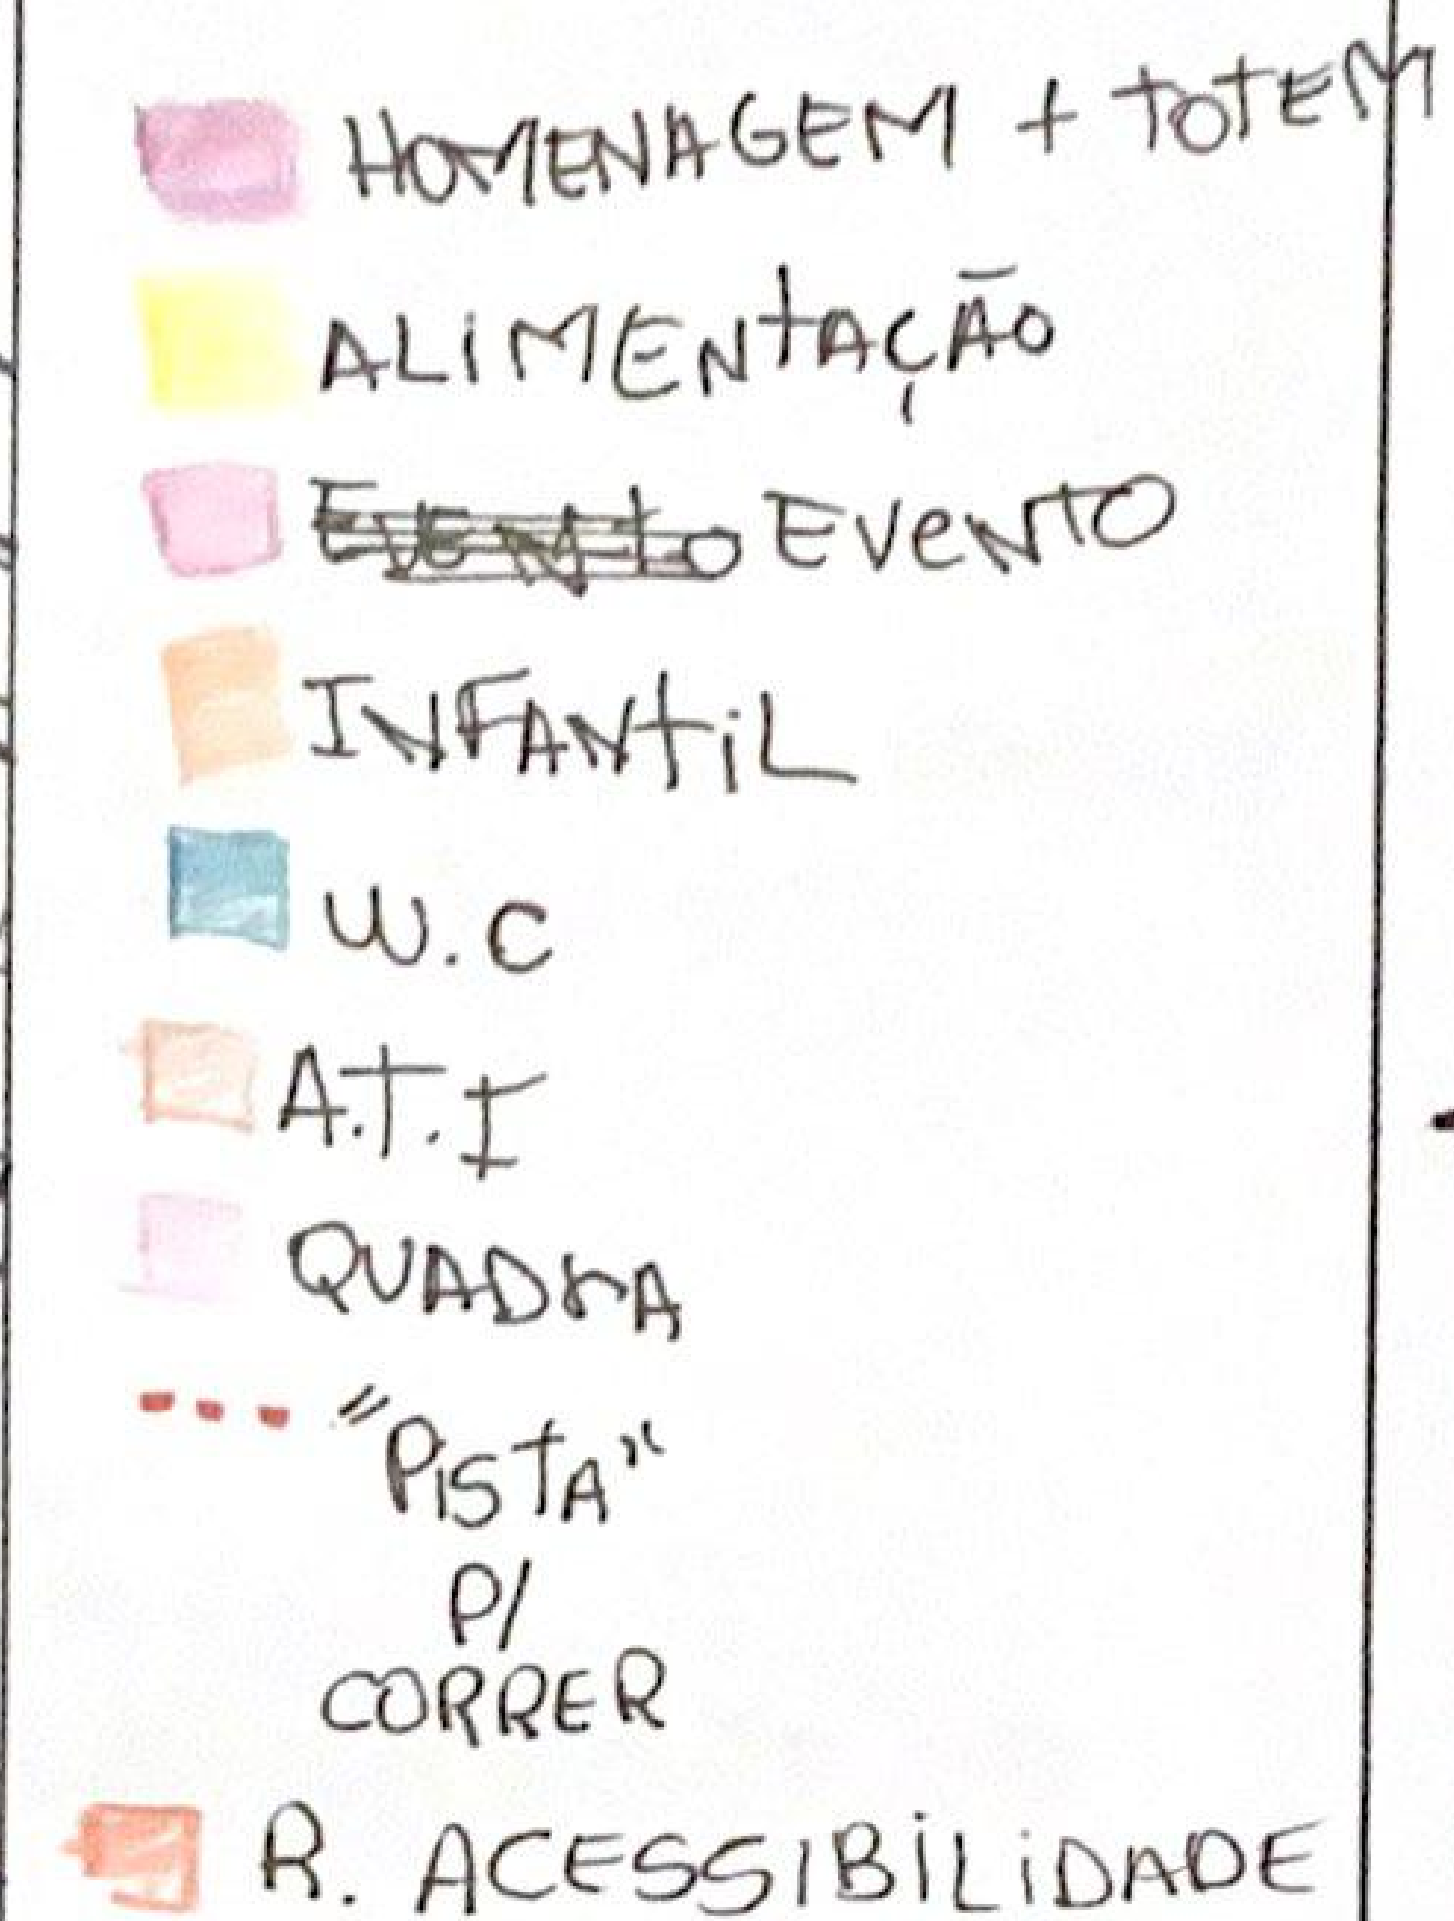 HOMENAGEM + TOTEM
ALIMENTAÇÃO
Evento EVENTO
INFANTIL
W.C
A.T.I
QUADRA
"PISTA"
P/
CORRER
R. ACESSIBILIDADE